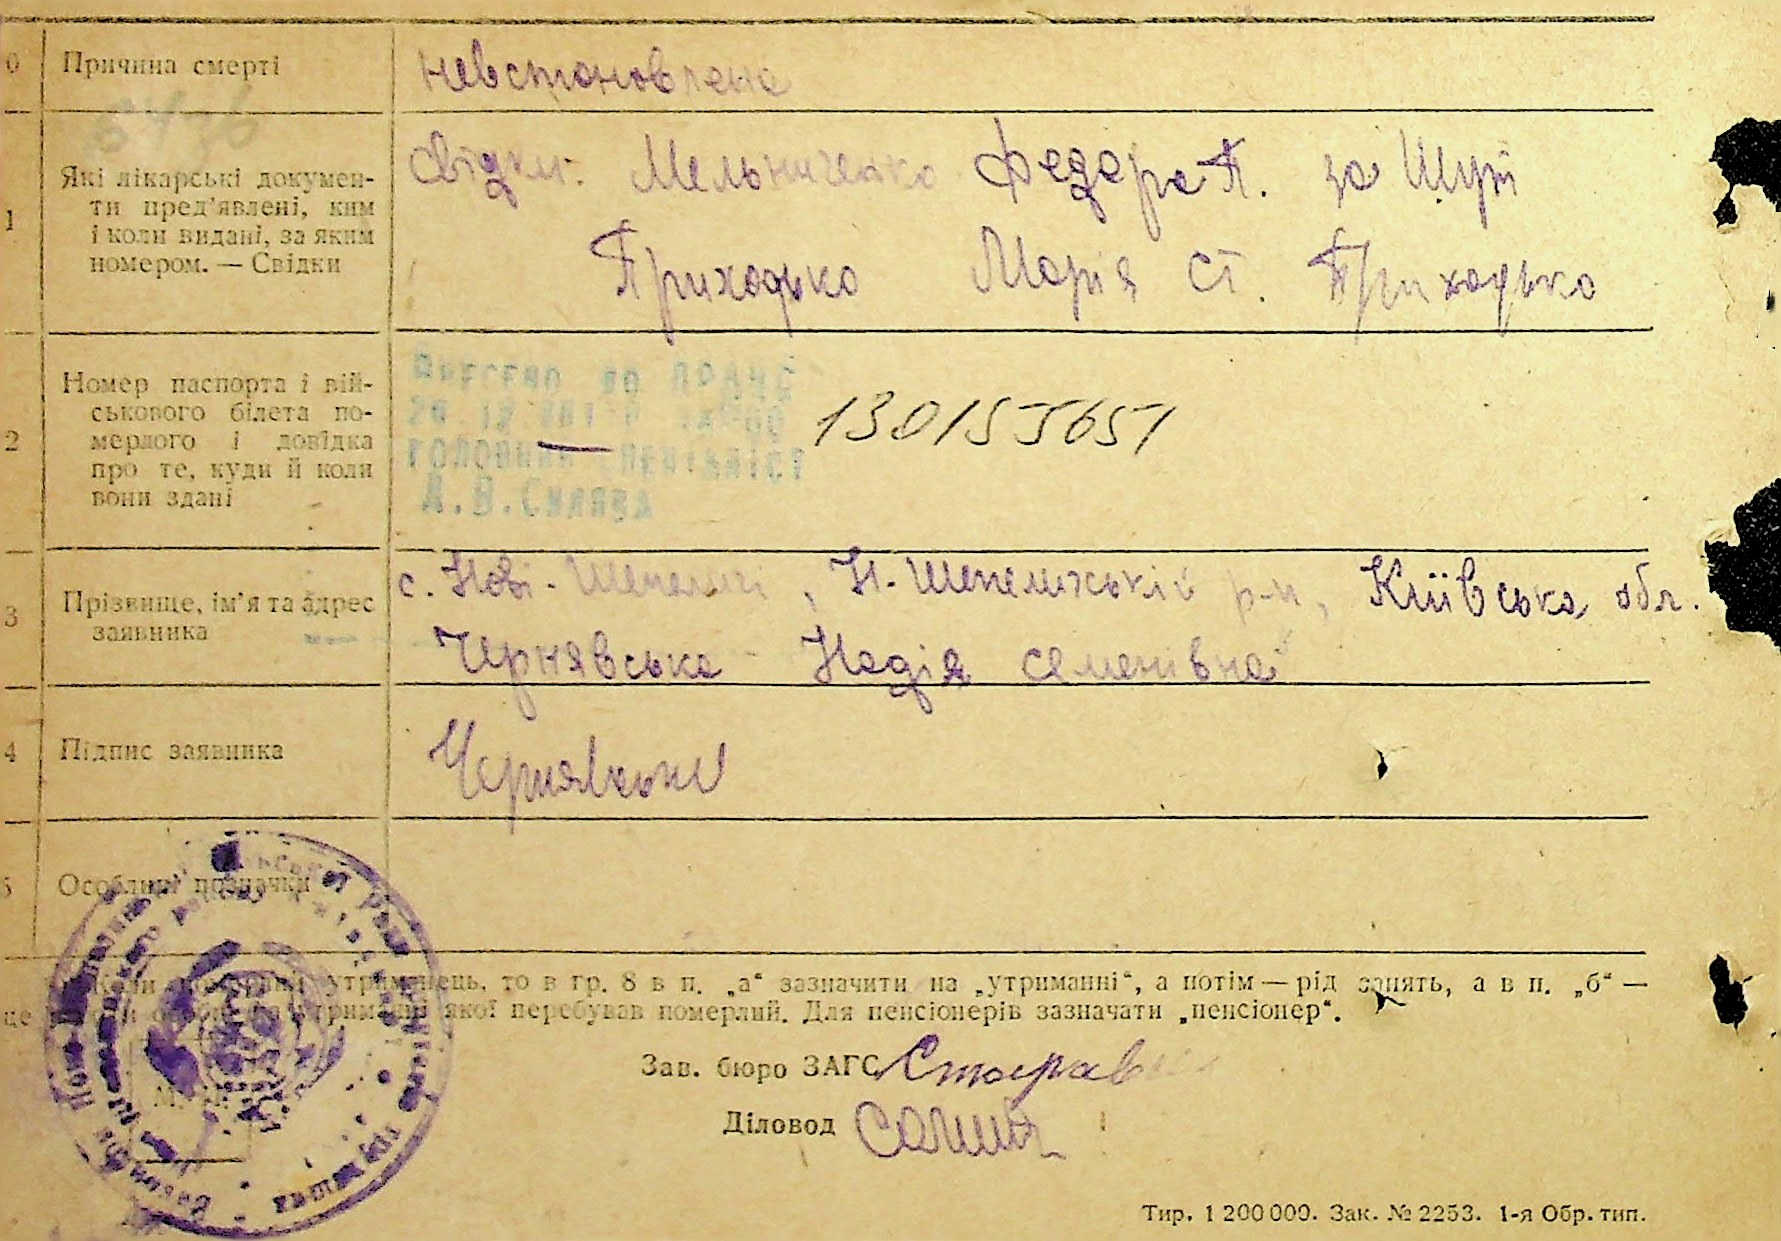 0 Причина смерті невстановлена
1 Які лікарські докумен-
ти пред’явлені, ким
і коли видані, за яким
номером. — Свідки
Свідки: Мельниченко Федора П. за
Приходько Марія Ст. Приходько
2 Номер паспорта і вій-
ськового білета по-
мерлого і довідка
про те, куди й коли
вони здані
— 130155651
ВНЕСЕНО ДО
ГОЛОВНИЙ СПЕЦІАЛІСТ
А.В.
3 Прізвище, ім’я та адрес
заявника
с. Нові-Шепеличі, Н-Шепелицькій р-н, Київська обл.
Чернявська Надія Семенівна
4 Підпис заявника Чернявська
5 Особливі позначки
утриманець, то в гр. 8 в п. „а“ зазначити на „утриманні“, а потім — рід занять, а в п. „б“ —
утриманні якої перебував померлий. Для пенсіонерів зазначати „пенсіонер“.
Зав. бюро ЗАГС
Діловод
Тир. 1 200 000. Зак. № 2253. 1-я Обр. тип.